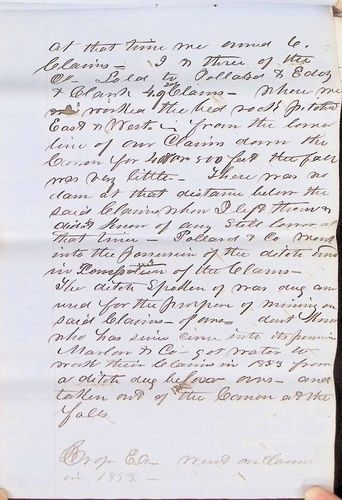 at that time we owned 6.
Claims - I & three of the
Co - Sold to Pollard & Eddy
& Clark 4 of Claims - where we
worked the bed rock pitched
East & West - from the lower
line of our Claims down the
Canon for 4 or 500 feet the fall
was very little - There was no
dam at that distance below the
said Claims when I left them &
didn't know of any still lower at
that time - Pollard & Co went
into the possession of the ditch and
in of the Claims -
The ditch Spoken of was dug and
used for the purpose of mining on
said Claims - dont know
who has since come into its possession
Marlow & Co - got water to
work their Claims in 1853 from
a ditch dug below ours - and
taken out of the Canon at the
falls
Crop Ex - went on claims
in 1853 -